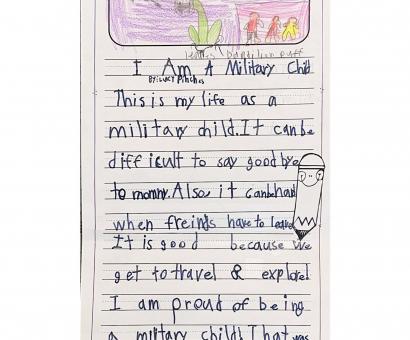 leaves dandilion puff
I Am A Military Child
By: Lucy Pinches
This is my life as a
military child. It can be
difficult to say goodbye
to mommy. Also it can be hard
when freinds have to leave
It is good because we
get to travel & explore!
I am proud of being
a military child! That was